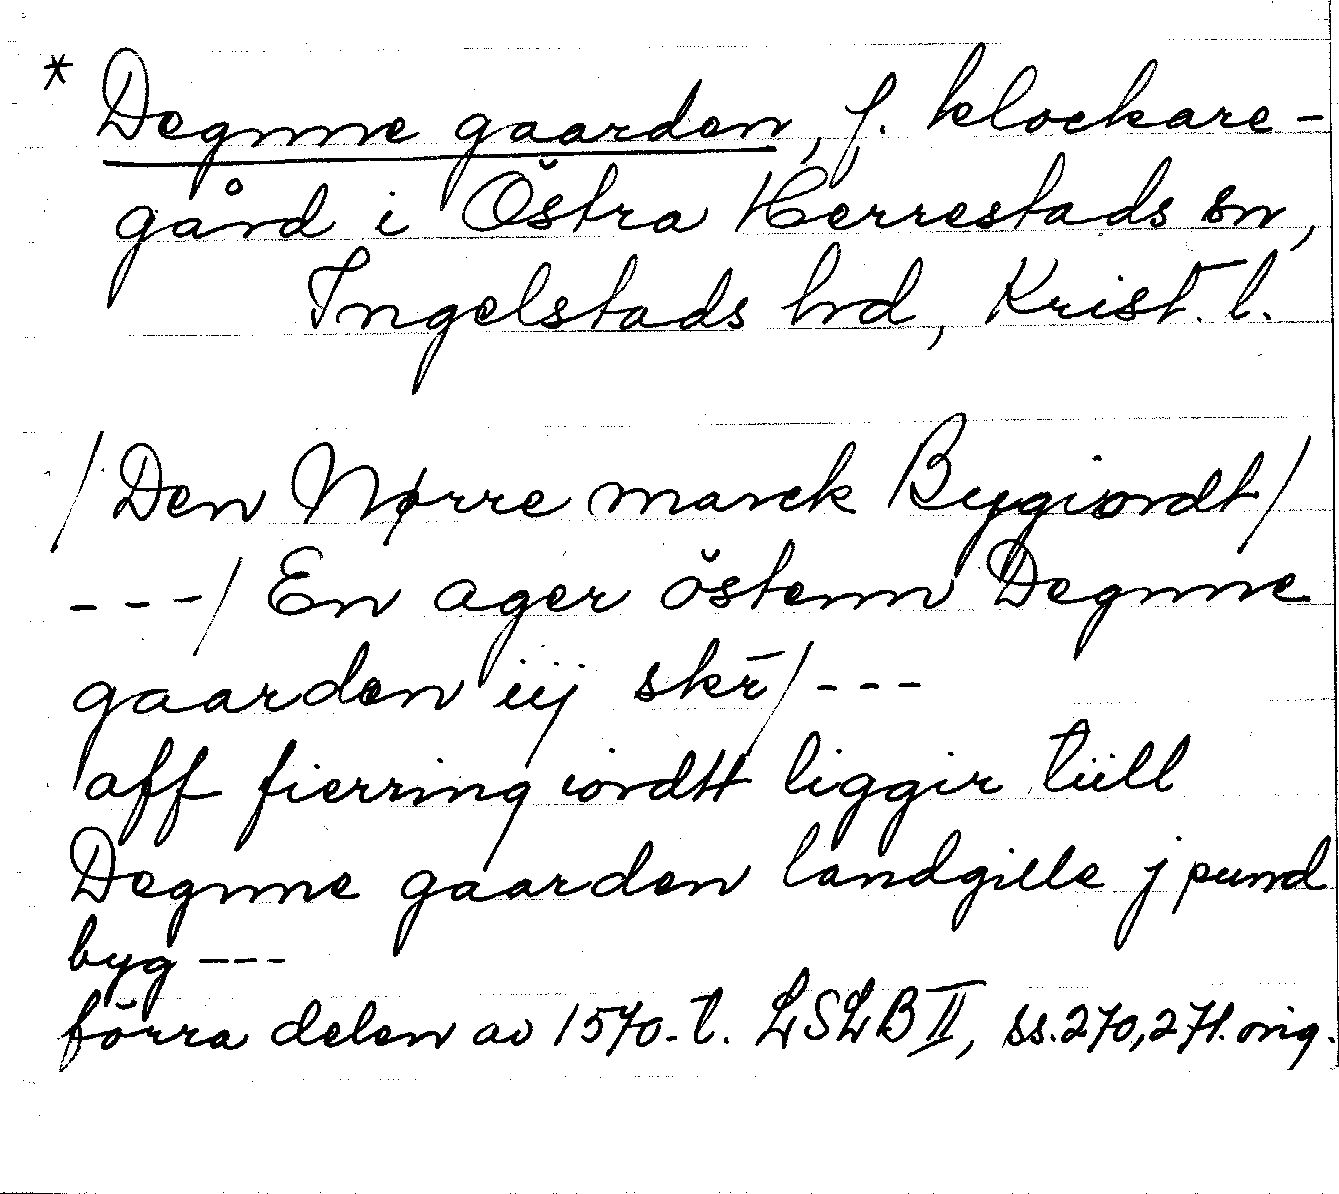 * Degnne gaarden, f. klockare-
gård i Östra Herrestads sn,
Ingelstads hrd, Krist. l.
/Den Nørre marck Bygiordt/
---/ En ager östenn Degnne
gaarden iij skr̄/---
aff fierring iordtt liggir tiill
Degnne gaarden landgille j pund
byg ---
förra delen av 1570-t. LSLB II, ss. 270, 271. orig.